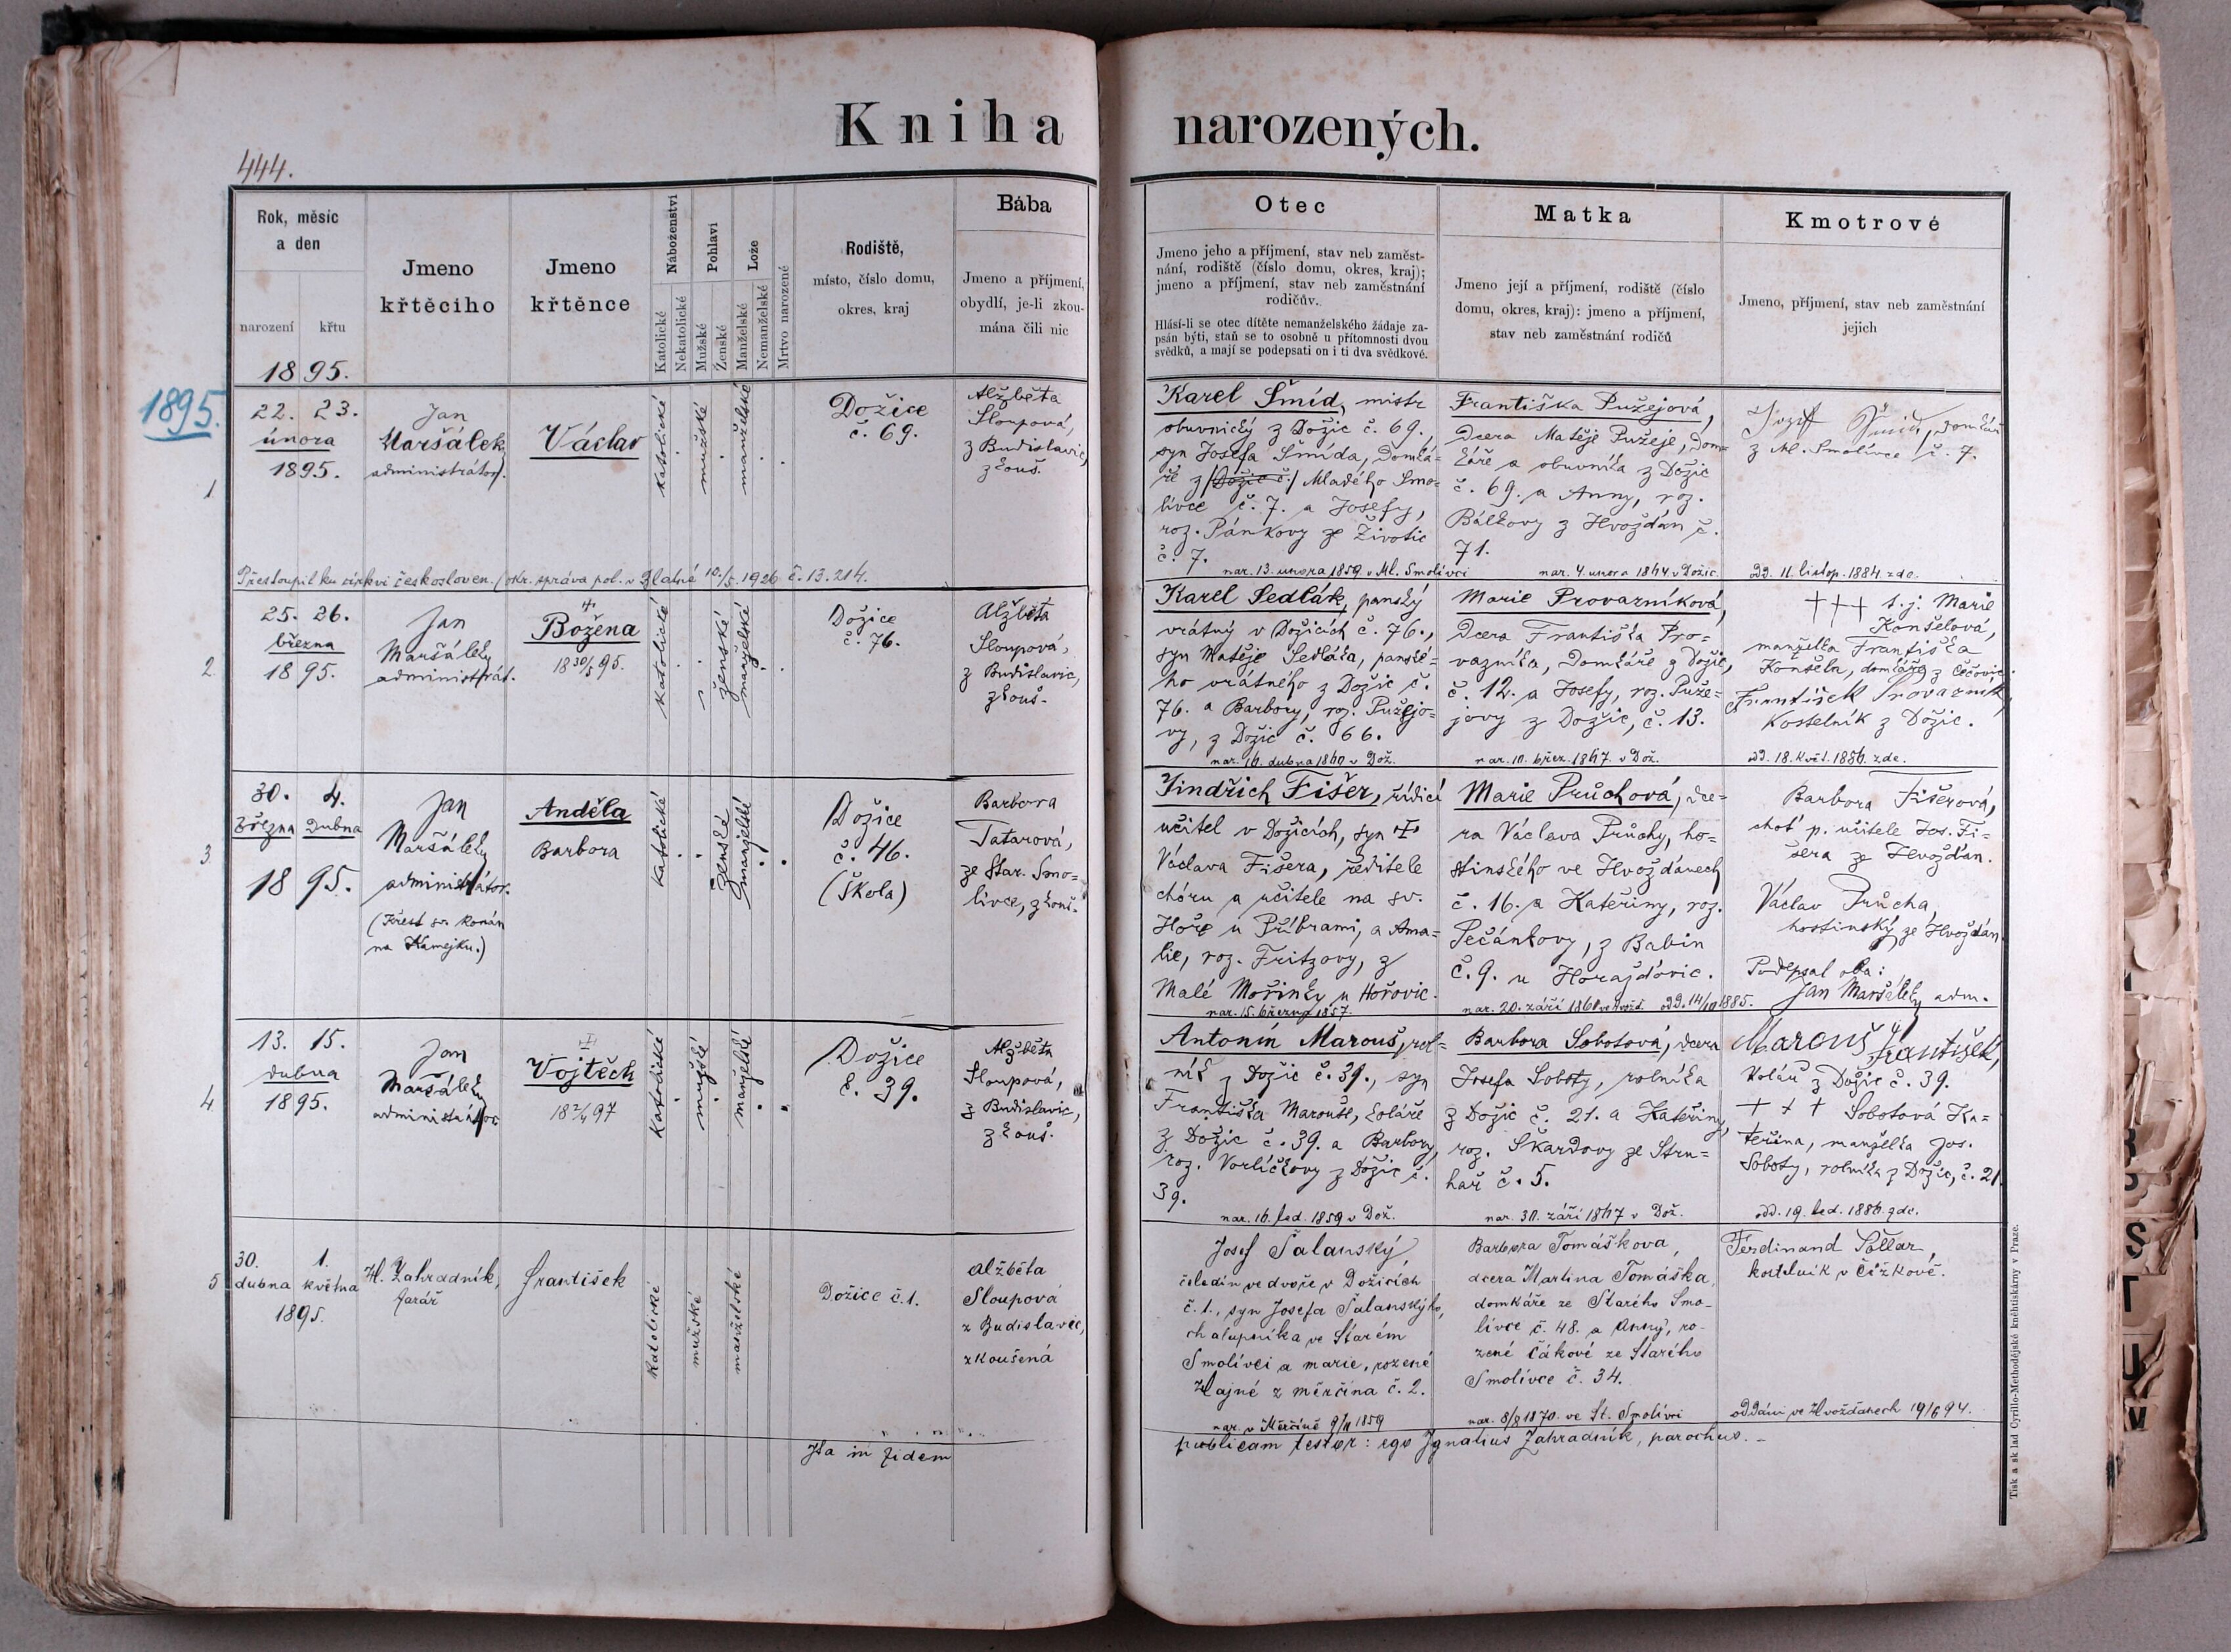 Kniha narozených.
444.
Rok, měsíc
a den
narození křtu
1895.
Jmeno
křtěcího
Jmeno
křtěnce
Náboženství
Katolické
Nekatolické
Pohlaví
Mužské
Ženské
Lože
Manželské
Nemanželské
Mrtvo narozené
Rodiště,
místo, číslo domu,
okres, kraj
Bába
Jmeno a příjmení,
obydlí, je-li zkou-
mána čili nic
Otec
Jmeno jeho a příjmení, stav neb zaměst-
nání, rodiště (číslo domu, okres, kraj);
jmeno a příjmení, stav neb zaměstnání
rodičův.
Hlásí-li se otec dítěte nemanželského žádaje za-
psán býti, staň se to osobně u přítomnosti dvou
svědků, a mají se podepsati on i ti dva svědkové.
Matka
Jmeno její a příjmení, rodiště (číslo
domu, okres, kraj): jmeno a příjmení,
stav neb zaměstnání rodičů
Kmotrové
Jmeno, příjmení, stav neb zaměstnání
jejich
1895.
1
22. 23.
února
1895.
Jan
Maršálek,
administrátor.
Václav
katolické
mužské
manželské
Dožice
č. 69.
Alžběta
Sloupová,
z Budislavic,
zkouš.
Karel Šmíd, mistr
obuvnický z Dožic č. 69.,
syn Josefa Šmída, domká-
ře z (Dožic č.) Mladého Smo-
livce č. 7. a Josefy,
roz. Pánkovy ze Životic
č. 7.
nar. 13. února 1859 v Ml. Smolivci
Františka Pužejová,
dcera Matěje Pužeje, dom-
káře a obuvníka z Dožic
č. 69. a Anny, roz.
Bálkovy z Hvožďan č.
71.
nar. 4. února 1864 v Dožic.
Josef Šmíd, domkář
z Ml. Smolivce č. 7.
Odd. 11. listop. 1884. zde.
Přestoupil ku církvi českosloven. (okr. správa pol. v Blatné 10./5. 1926 č. 13.214.
2
25. 26.
března
1895.
Jan
Maršálek,
administrát.
†
Božena
18 30/5 95.
katolické
ženské
manželské
Dožice
č. 76.
Alžběta
Sloupová,
z Budislavic,
zkouš.
Karel Sedlák, panský
vrátný v Dožicích č. 76.,
syn Matěje Sedláka, panské-
ho vrátného z Dožic č.
76. a Barbory, roz. Pužejo-
vy, z Dožic č. 66.
nar. 16. dubna 1860 v Dož.
Marie Provazníková,
dcera Františka Pro-
vazníka, domkáře z Dožic,
č. 12. a Josefy, roz. Puže-
jovy z Dožic, č. 13.
nar. 10. břez. 1867. v Dož.
††† t. j. Marie
Konšelová,
manželka Františka
Konšela, domkáře z Čečovic.
František Provazník,
kostelník z Dožic.
odd. 18. květ. 1886. zde.
3
30. 4.
března dubna
1895.
Jan
Maršálek,
administrátor.
(Křest sv. konán
na Kamejku.)
Anděla
Barbora
katolické
ženské
manželské
Dožice
č. 46.
(Škola)
Barbora
Tatarová,
ze Star. Smo-
livce, zkouš.
Jindřich Fišer, řídící
učitel v Dožicích, syn †
Václava Fišera, ředitele
chóru a učitele na sv.
Hoře u Příbrami, a Ama-
lie, roz. Fritzovy, z
Malé Mořinky u Hořovic.
nar. 15. března 1857.
Marie Průchová, dce-
ra Václava Průchy, ho-
stinského ve Hvožďanech
č. 16. a Kateřiny, roz.
Pečánkovy, z Babin
č. 9. u Horažďovic.
nar. 20. září 1860 ve Hvožď. odd. 14/10 1885.
Barbora Fišerová,
choť p. učitele Jos. Fi-
šera ze Hvožďan.
Václav Průcha,
hostinský ze Hvožďan.
Podepsal oba:
Jan Maršálek, adm.
4
13. 15.
dubna
1895.
Jan
Maršálek,
administrátor.
†
Vojtěch
18 2/4 97
katolické
mužské
manželské
Dožice
č. 39.
Alžběta
Sloupová,
z Budislavic,
zkouš.
Antonín Marouš, rol-
ník z Dožic č. 39., syn
Františka Marouše, koláře
z Dožic č. 39. a Barbory,
roz. Vorlíčkovy z Dožic č.
39.
nar. 16. led. 1859 v Dož.
Barbora Sobotová, dcera
Josefa Soboty, rolníka
z Dožic č. 21. a Kateřiny,
roz. Škardovy ze Stru-
hař č. 5.
nar. 30. září 1867 v Dož.
Marouš František,
kolář z Dožic č. 39.
††† Sobotová Ka-
teřina, manželka Jos.
Soboty, rolníka z Dožic, č. 21.
odd. 19. led. 1886. zde.
5
30. 1.
dubna května
1895.
H. Zahradník,
farář
František
katolické
mužské
manželské
Dožice č. 1.
Alžběta
Sloupová
z Budislavic,
zkoušená
Josef Šalanský
čeledín ve dvoře v Dožicích
č. 1., syn Josefa Šalanského,
chalupníka ve Starém
Smolivci a Marie, rozené
Hajné z Měrčína č. 2.
nar. v Měrčíně 9/11 1859
Barbora Tomáškova,
dcera Martina Tomáška,
domkáře ze Starého Smo-
livce č. 48. a Anny, ro-
zené Čákové ze Starého
Smolivce č. 34.
nar. 8/8 1870. ve St. Smolivci
Ferdinand Pollar,
kostelník v Čížkově.
oddáni ve Hvožďanech 19/6 94.
Ita in fidem publicam testor: ego Ignatius Zahradník, parochus.
Tisk a sklad Cyrillo-Methodějské knihtiskárny v Praze.
S
T
U
V